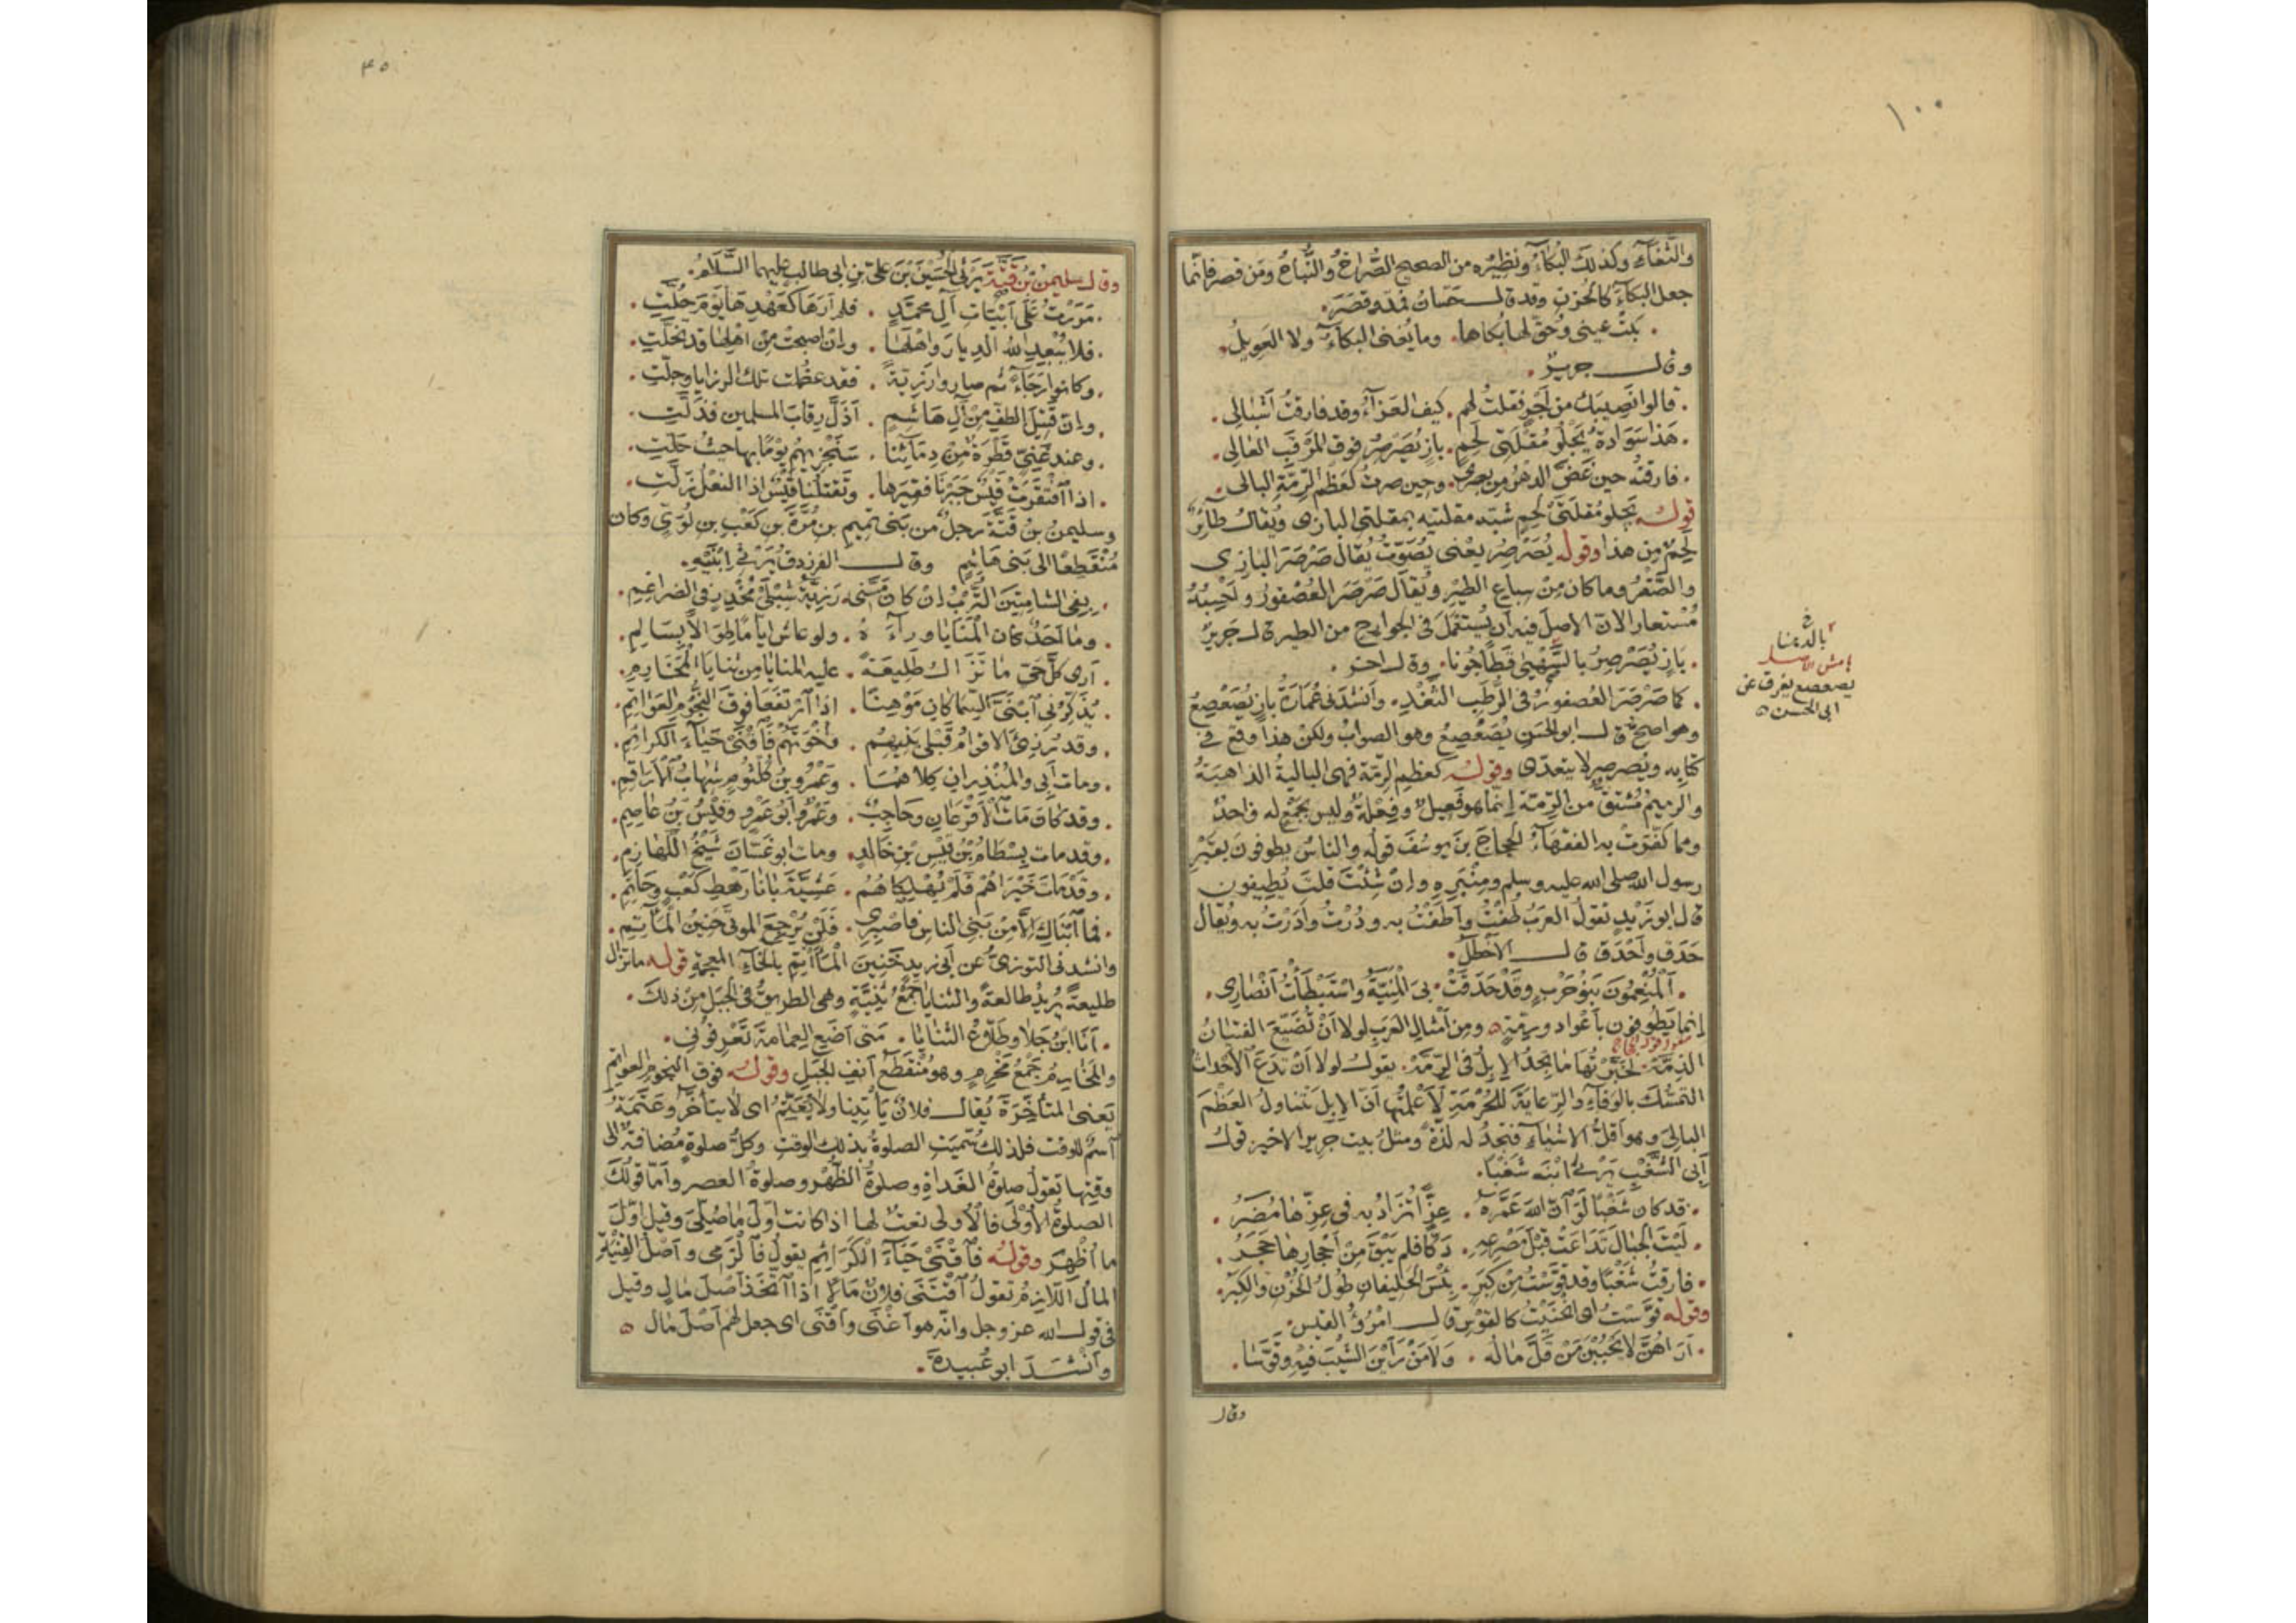 ١٠٠
والثغاء وكذلك البكاء ونظيره من الصحيح الصُّراخُ والنُّباحُ ومَن قصر فإنّما
جعل البكاءَ كالحُزنِ وقد قال حسّانُ فمدّ وقصَرَ.
بكتْ عيني وحُقّ لها بُكاها. وما يُغني البكاءُ ولا العويلُ.
وقال جريرٌ.
قالوا نصيبَك من أجرٍ فقلتُ لهم. كيف العزاءُ وقد فارقتُ أشبالي.
هذا سَوادةُ يَجْلُو مُقْلَتَيْ لَحِمٍ. بازٍ يُصَرْصِرُ فوق المَرْقَبِ العالي.
فارقتُه حين غَضَّ الدهرُ من بصري. وحين صرتُ كعَظْمِ الرِّمّةِ البالي.
قوله يَجلو مُقلَتَيْ لَحِمٍ شبّه مقلتيه بمقلتي البازي ويُقال طائرٌ
لَحِمٌ من هذا وقوله يُصَرْصِرُ يعني يُصَوِّتُ يُقال صَرْصَرَ البازي
والصَّقْرُ وما كان مِنْ سباع الطير ويُقال صَرْصَرَ العُصفورُ وأحْسِبُهُ
مُستعارا لأنّ الأصلَ فيه أن يُستعمَلَ في الجوارح من الطير قال جريرٌ
بازٍ يُصَرْصِرُ بالسَّهْبَى قَطًا جُونا. وقال آخر.
كما صَرْصَرَ العصفورُ في الرُّطَبِ الثَّعْدِ. وأنشدني عُمارةُ بازٍ يُصَعْصِعُ
وهو أصحّ قال أبو الحَسَنِ يُصَعْصِعُ وهو الصوابُ ولكنْ هذا وقع في
كتابه ويُصرصِر لا يتعدّى وقوله كعظم الرِّمّة فهي الباليةُ الذاهبةُ
والرميمُ مُشتقٌّ من الرِّمّةِ إنّما هو فَعِيلٌ وفِعْلةٌ وليس بجَمْعٍ له واحدٌ
ومما كفّرَتْ به الفقهاءُ الحجاجَ بنَ يوسُفَ قولُه والناسُ يطوفونَ بقبْرِ
رسول الله صلى الله عليه وسلم ومِنْبَرِهِ وإنْ شِئْتَ قلتَ يُطِيفون
قال أبو زيدٍ تقولُ العربُ طُفْتُ وأطَفْتُ به ودُرْتُ وأدَرْتُ به ويُقال
حَدَقَ وأحْدَقَ قال الأخطلُ.
المُنْعِمُونَ بَنُو حَرْبٍ وقَدْ حَدَقَتْ. بيَ المَنِيَّةُ واستَبْطَأتُ أنْصاري.
إنما يَطُوفون بأعْوادٍ ورِمّةٍ ه ومن أمثالِ العَربِ لولا أنْ تُضَيِّعَ الفتيانُ
الذِمّةَ. لخَبَّرْتُها ما تجدُ الإبلُ في الرِّمّة. يقول لولا أنْ تدَعَ الأحداثُ
التمسُّكَ بالوفاءِ والرِّعايةَ للحُرْمةِ لأعلمتُها أنّ الإبلَ تتناولُ العَظْمَ
الباليَ وهو أقلُّ الأشياءِ فتجدُ له لذّةً ومثلُ بيت جريرٍ الأخيرِ قولُ
أبي الشَّغْبِ يَرْثي ابنَه شَغْبًا.
قد كان شَغْبٌ لوَ انّ اللهَ عَمَّرَهُ. عِزًّا تُزادُ به في عِزِّها مُضَرُ.
لَيْتَ الجبالَ تَداعَتْ قبلَ مَصْرعِه. دَكًّا فلم يَبْقَ مِنْ أحْجارِها حَجَرُ.
فارقتُ شَغْبًا وقد قوَّسْتُ مِنْ كِبَرٍ. بِئْسَ الحليفانِ طُولُ الحُزْنِ والكِبَرُ.
وقوله قوَّسْتُ أي انحنَيْتُ كالقوْسِ قال امْرُؤُ القيس.
أراهُنَّ لا يُحْبِبْنَ مَنْ قَلَّ مالُه. ولا مَنْ رَأَيْنَ الشَّيْبَ فيهِ وقَوَّسا.
وقال
بالدهنا
يصعصع يفرق عن
ابى الحسن ه
٤٥
وقال سليمنُ بْنُ قَتّةَ يَرْثي الحُسَيْنَ بْنَ عليّ بْنِ ابي طالب عليهما السَّلامُ.
مَرَرْتُ عَلَى أبْياتِ آلِ محمَّدٍ. فلم أرَها كعَهْدِها يوْمَ حُلَّتِ.
فلا يُبْعِدِ اللهُ الديارَ وأهْلَها. وإنْ أصبحتْ مِنْ أهْلِها قد تَخلَّتِ.
وكانوا رَجاءً ثم صاروا رَزِيّةً. فقد عظُمت تلك الرزايا وجلَّتِ.
وإنَّ قتيلَ الطفِّ مِنْ آلِ هاشمٍ. أذَلَّ رِقابَ المسلمين فذَلَّتِ.
وعندَ غَنِيٍّ قَطْرَةٌ مِنْ دِمائِنا. سَنَجْزِيهُمُ يوْمًا بها حيثُ حلَّتِ.
اذا افتقَرَتْ قيْسٌ جَبَرْنا فقيرَها. وتَقتُلُنا قَيْسٌ اذا النعْلُ زَلَّتِ.
وسليمنُ بنُ قَتّةَ رجلٌ من بَني تميمِ بنِ مُرَّةَ بنِ كَعْبِ بنِ لُؤَيٍّ وكان
مُنْقَطِعًا الى بَني هاشم وقال الفرزدقُ يَرْثي ابْنَيْهِ.
بِفِي الشامِتينَ التُّرْبُ إنْ كان مسَّني. رَزِيّةُ شِبْلَيْ مُخْدِرٍ في الضراغمِ.
وما أحدٌ كان المَنايا وراءَهُ. ولو عاش أيامًا طِوالًا بِسالمِ.
أرى كلَّ حَيٍّ ما تَزالُ طليعةً. عليه المنايا من ثنايا المَخارمِ.
يُذكّرُني ابنَيَّ السِّماكانِ مَوْهِنًا. اذا ارتفَعا فوقَ النُّجومِ العَواتمِ.
وقد رُزِئَ الأقوامُ قبلي بنيهُمُ. وإخوانَهُمْ فاقْنَيْ حياءَ الكرائمِ.
ومات أبي والمُنذِرانِ كلاهُما. وعَمْرُو بْنُ كُلثومٍ شهابُ الأراقمِ.
وقد كان مات الأقْرَعانِ وحاجبٌ. وعمْرٌو أبو عَمْرٍو وقيْسُ بْنُ عاصِمِ.
وقد مات بِسْطامُ بْنُ قيْسِ بْنِ خالدٍ. ومات أبو غسّانَ شَيْخُ اللَّهازمِ.
وقد مات خَيْراهُمْ فلَمْ يُهْلِكاهُمُ. عَشِيّةَ بانا رَهْطِ كَعْبٍ وحاتمِ.
فما ابناكِ إلّا مِنْ بَني الناسِ فاصْبِري. فلَنْ يُرْجِعَ الموتى حَنينُ المآتمِ.
وأنشدني التوزيُّ عن أبي زيد خَنينَ المآتم بالخاءِ المعجمة قوله ما تزال
طليعةً يُريدُ طالعةً والثنايا جَمْعُ ثنيّةٍ وهي الطريقُ في الجبل من ذلك.
أنا ابنُ جَلا وطَلّاعُ الثنايا. مَتى أضَعِ العِمامةَ تَعْرِفوني.
والمخارمُ جَمْعُ مَخْرِمٍ وهو مُنْقَطَعُ أنفِ الجبَلِ وقولُه فوق النجومِ العواتم
يَعني المتأخّرةَ يُقال فلانٌ يأتينا ولا يُعَتِّمُ اى لا يتأخّرُ وعَتَمَةُ
اسمٌ للوقت فلذلك سُمّيَتِ الصلوةُ بذلك الوقتِ وكلُّ صلوةٍ مُضافةٌ الى
وقتِها تقول صلوةُ الغداةِ وصلوةُ الظُّهْر وصلوةُ العصر وأمّا قولُك
الصلوةُ الأولى فالأولى نعتٌ لها اذا كانت أوّلَ ما صُلّيَ وقيل اوّلُ
ما أُظْهِرَ وقولُه فاقْنَيْ حَياءَ الكَرائِمِ يقول فالْزَمي وأصْلُ القِنْيةِ
المالُ اللّازِمُ تقولُ اقْتَنى فلانٌ مالًا اذا اتّخذ أصْلَ مالٍ وقيل
في قول الله عز وجل وأنّه هو أغْنَى وأقْنَى اى جعل لهم أصْلَ مال ه
وأنْشَدَ ابو عُبيدةَ.